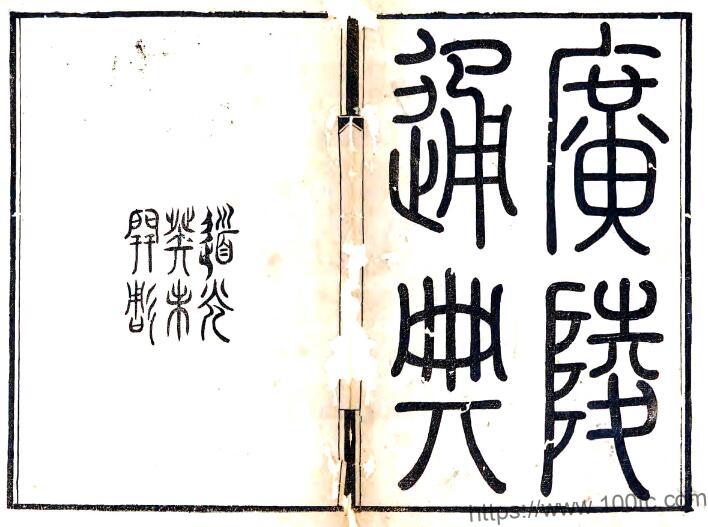 廣陵
通典
道光
癸未
開雕
https://www.100fc.com